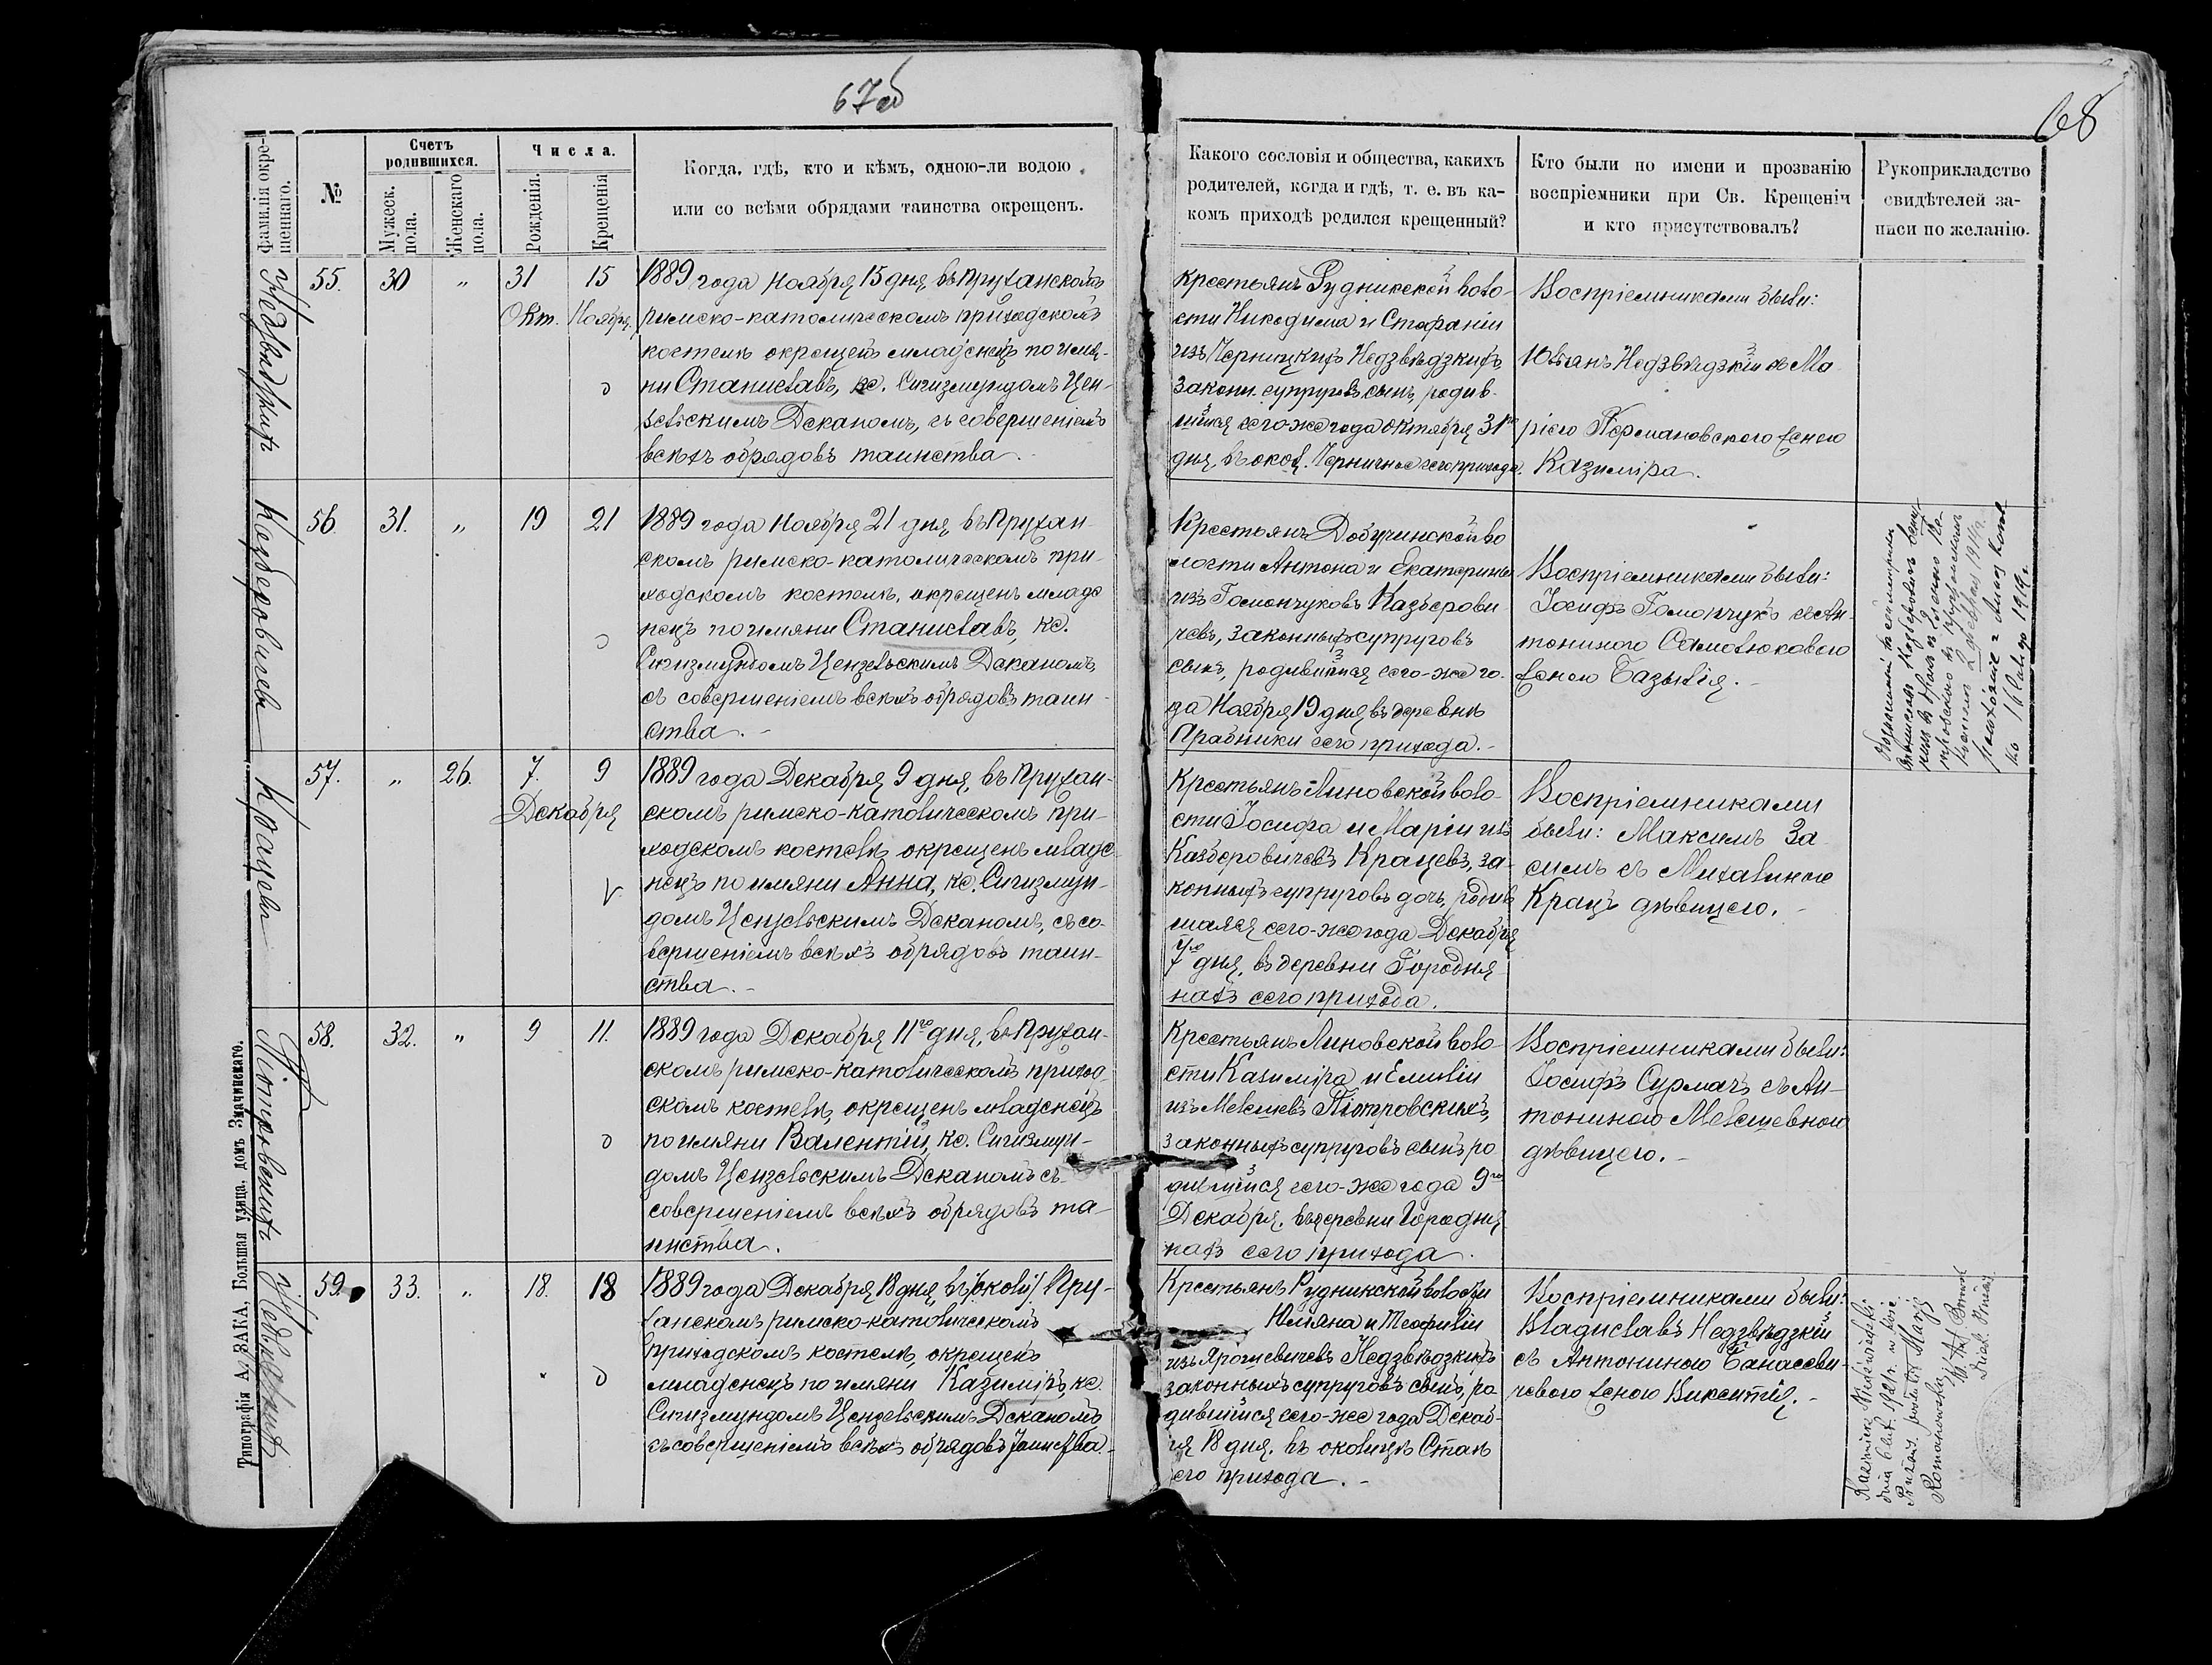 67об
68
Фамилія окре-
щеннаго.
№
Счетъ
родившихся.
Мужеск.
пола.
Женскаго
пола.
Числа.
Рожденія.
Крещенія
Когда, гдѣ, кто и кѣмъ, одною-ли водою
или со всѣми обрядами таинства окрещенъ.
Какого сословія и общества, какихъ
родителей, когда и гдѣ, т. е. въ ка-
комъ приходѣ родился крещенный?
Кто были по имени и прозванію
воспріемники при Св. Крещеніи
и кто присутствовалъ?
Рукоприкладство
свидѣтелей за-
писи по желанію.
Недзвѣдзкихъ
55.
30
„
31
Окт.
15
Ноября,
1889 года Ноября 15 дня въ Пружанскомъ
римско-католическомъ приходскомъ
костелѣ окрещенъ младенецъ по имя-
ни Станиславъ, кс. Сигизмундомъ Цен-
зельскимъ Деканомъ, съ совершеніемъ
всѣхъ обрядовъ таинства.
Крестьянъ Рудникской воло-
сти Никодима и Стефаніи
изъ Черницкихъ Недзвѣдзкихъ
законн. супруговъ сынъ, родив-
шійся сего-же года октября 31го
дня, въ окол. Черничное сего прихода.
Воспріемниками были:
Юльянъ Недзвѣдзкій съ Ма
ріею Германовскою женою
Казиміра.
Казберовичевъ
56
31.
„
19
21
1889 года Ноября 21 дня въ Пружан-
скомъ римско-католическомъ при-
ходскомъ костелѣ, окрещенъ младе
нецъ по имяни Станиславъ, кс.
Сигизмундомъ Цензельскимъ Деканомъ,
съ совершеніемъ всѣхъ обрядовъ таин-
ства. -
Крестьянъ Добучинской во
лости Антона и Екатерины
изъ Гомончуковъ Казберови
чевъ, законныхъ супруговъ
сынъ, родившійся сего-же го-
да Ноября 19 дня въ деревнѣ
Прабники сего прихода. -
Воспріемниками были:
Іосифъ Гомончукъ съ Ан-
тониною Самолюковою
женою Базылія. -
Крацевъ
57.
„
26.
7.
Декабря
9
1889 года Декабря 9 дня, въ Пружан-
скомъ римско-католическомъ при-
ходскомъ костелѣ окрещенъ младе-
нецъ по имяни Анна, кс. Сигизмун-
домъ Цензельскимъ Деканомъ, съ со-
вершеніемъ всѣхъ обрядовъ таин-
ства. -
Крестьянъ Линовской воло-
сти Іосифа и Маріи изъ
Казберовичевъ Крацевъ, за-
конныхъ супруговъ дочь, родив
шаяся сего-же года Декабря
7го дня, въ деревни Городня-
нахъ сего прихода.
Воспріемниками
были: Максимъ За
симъ съ Михалиною
Крацъ дѣвицею. -
Піотровскихъ
58.
32.
„
9
11.
1889 года Декабря 11го дня, въ Пружан-
скомъ римско-католическомъ приход-
скомъ костелѣ, окрещенъ младенецъ
по имяни Валентій, кс. Сигизмун-
домъ Цензельскимъ Деканомъ съ
совершеніемъ всѣхъ обрядовъ та-
инства.
Крестьянъ Линовской воло-
сти Казиміра и Емиліи
изъ Мелешевъ Піотровскихъ,
законныхъ супруговъ сынъ ро
дившійся сего-же года 9го
Декабря, въ деревни Городня
нахъ сего прихода.
Воспріемниками были:
Іосифъ Сурмачъ съ Ан-
тониною Мелешевною
дѣвицею. -
59
33.
„
18.
18
1889 года Декабря 18 дня, въ Пру-
жанскомъ римско-католическомъ
приходскомъ костелѣ, окрещенъ
младенецъ по имяни Казиміръ, кс.
Сигизмундомъ Цензельскимъ Деканомъ
съ совершеніемъ всѣхъ обрядовъ таинства.
Крестьянъ Рудникской волости
Юліяна и Теофиліи
изъ Ярошевичевъ Недзвѣдзкихъ
законныхъ супруговъ сынъ, ро
дившійся сего-же года Декаб-
ря 18 дня, въ околицѣ Стакъ
его прихода. -
Воспріемниками были:
Владиславъ Недзвѣдзкій
съ Антониною Банасеви-
чевою женою Викентія. -
Kazimierz Niedźwiedzki
Romanowską
Типографія А. ЗАКА, Большая улица, домъ Значинскаго.